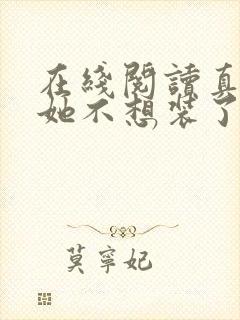 在綫閱讀真
她不想裝了
莫寧妃